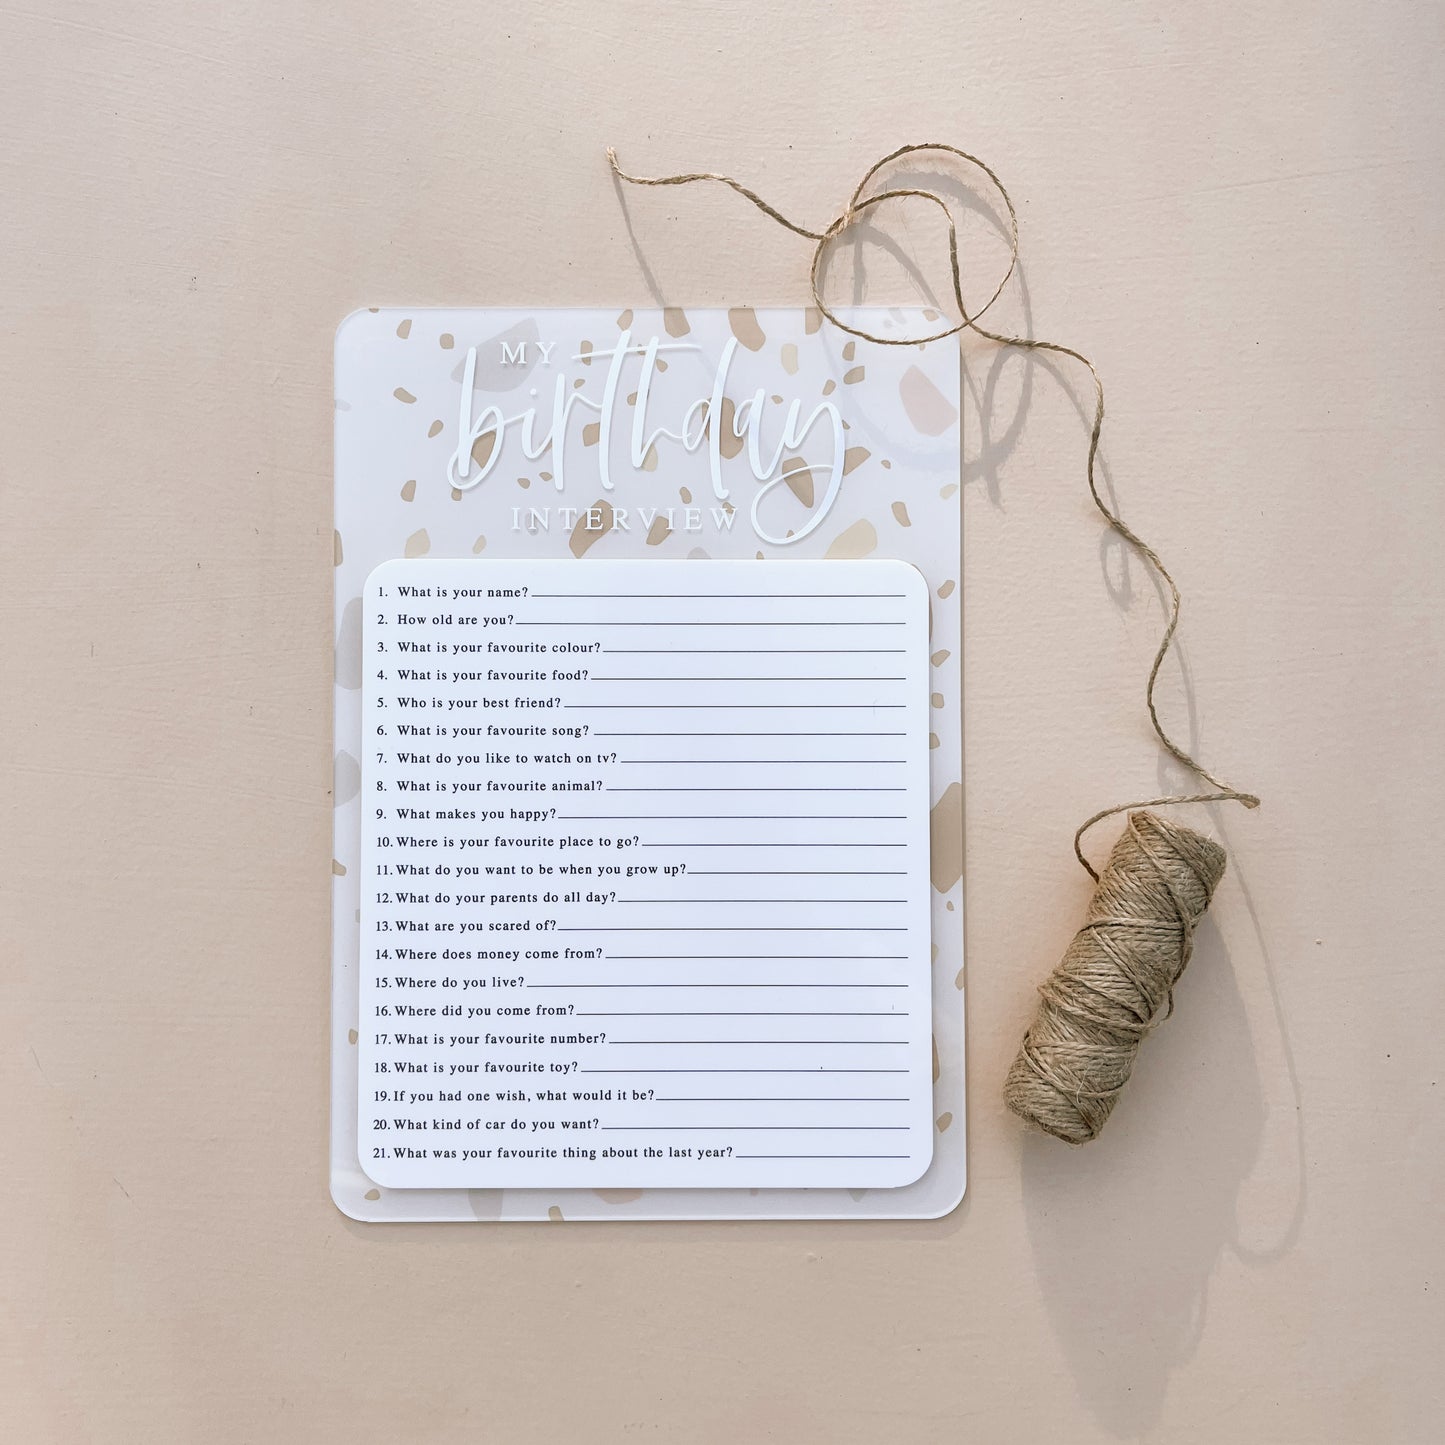 MY
birthday
INTERVIEW
1. What is your name?
2. How old are you?
3. What is your favourite colour?
4. What is your favourite food?
5. Who is your best friend?
6. What is your favourite song?
7. What do you like to watch on tv?
8. What is your favourite animal?
9. What makes you happy?
10. Where is your favourite place to go?
11. What do you want to be when you grow up?
12. What do your parents do all day?
13. What are you scared of?
14. Where does money come from?
15. Where do you live?
16. Where did you come from?
17. What is your favourite number?
18. What is your favourite toy?
19. If you had one wish, what would it be?
20. What kind of car do you want?
21. What was your favourite thing about the last year?